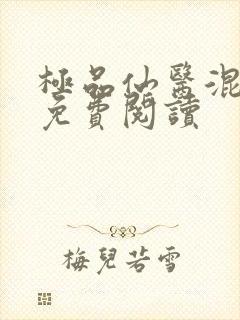 極品仙醫混
免費閱讀
梅兒若雪